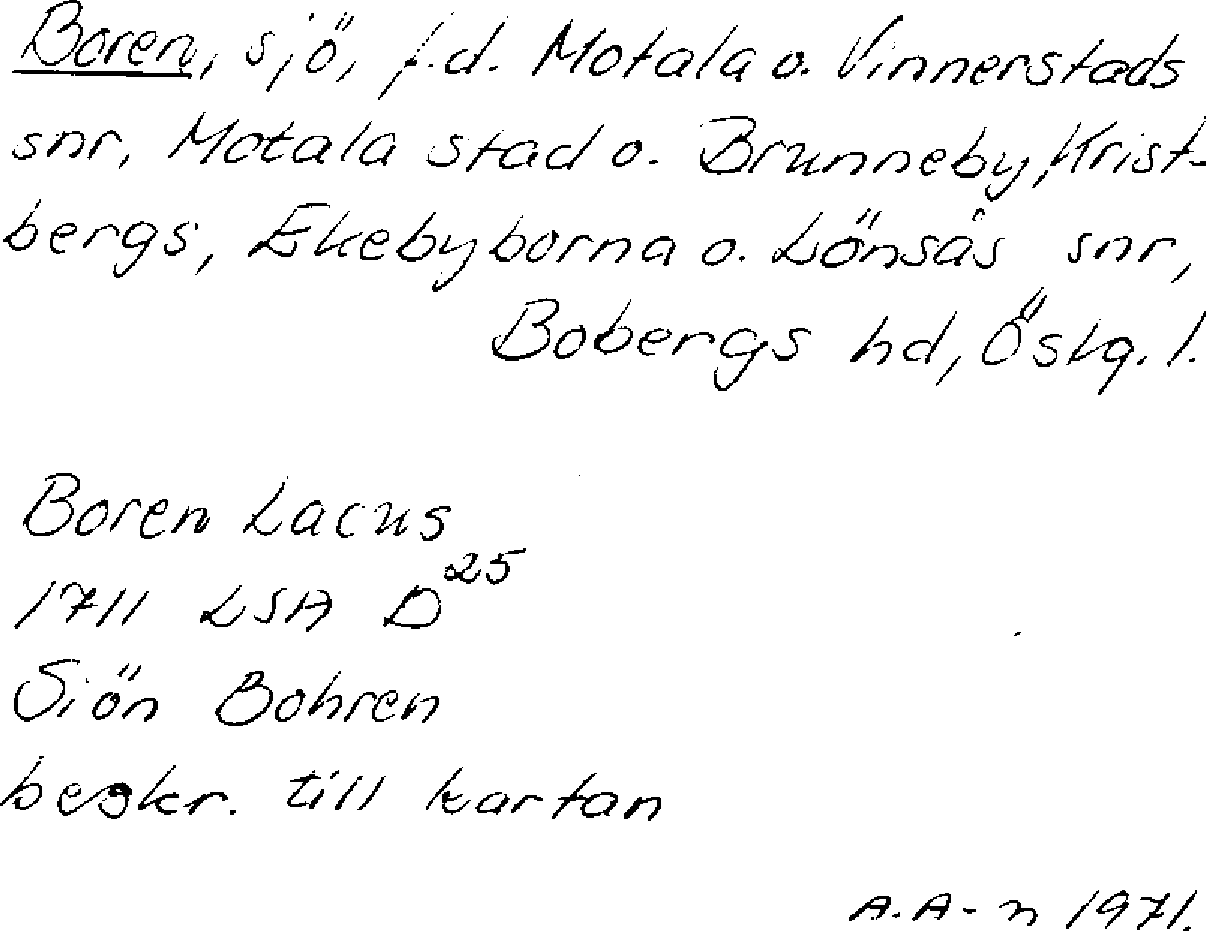 Boren, sjö, f.d. Motala o. Vinnerstads
snr, Motala stad o. Brunneby, Krist-
bergs, Ekebyborna o. Lönsås snr,
Bobergs hd, Östg. l.
Boren Lacus
1711 LSA D25
Siön Bohren
beskr. till kartan
A.A-n 1971.